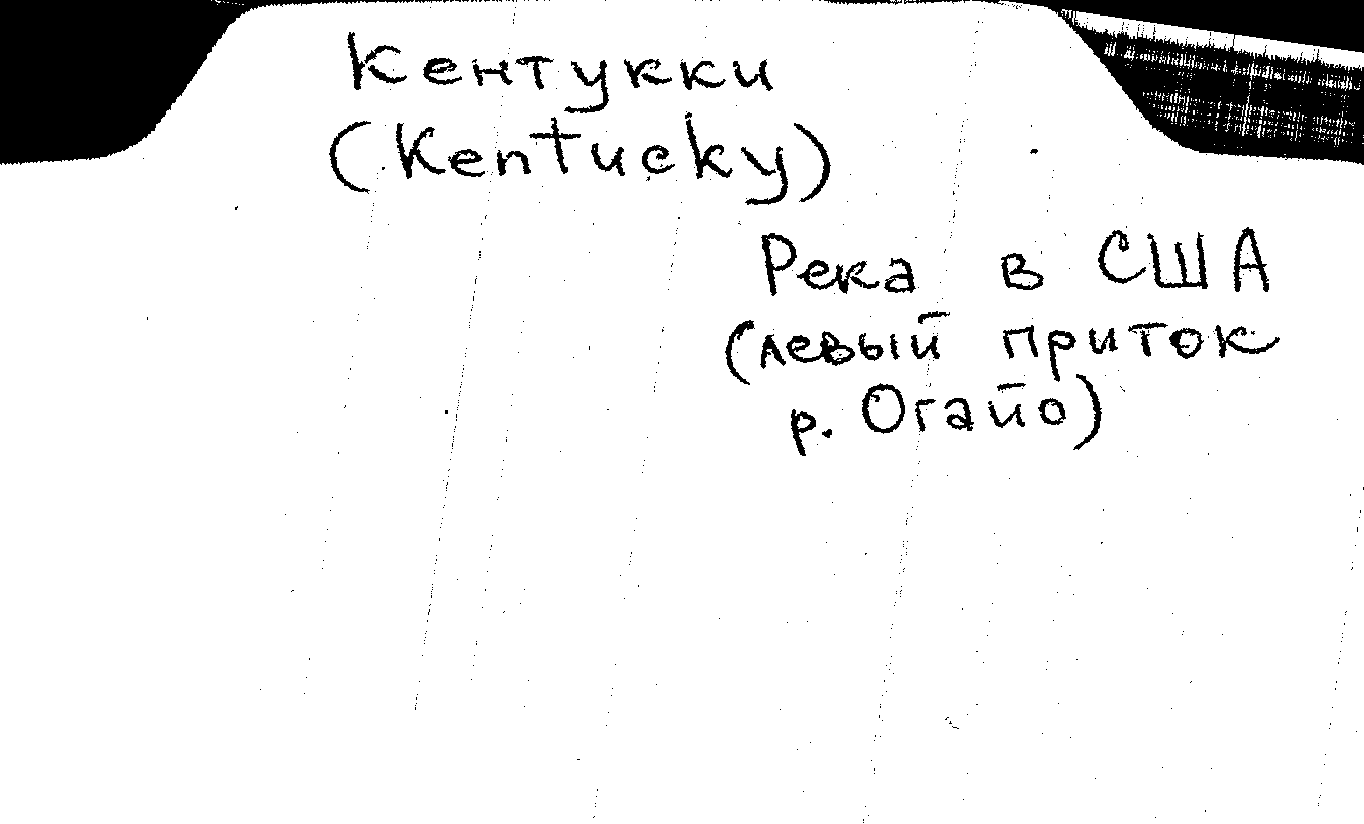 Кентукки
(Kentucky)
Река в США
(левый приток
р. Огайо)